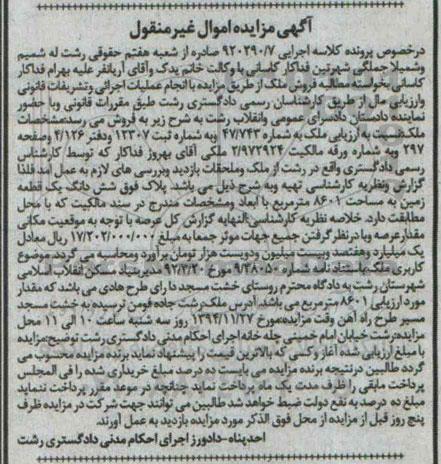 آگهی مزایده اموال غیر منقول
درخصوص پرونده کلاسه اجرایی ۹۲۰۳۹۰/۷ صادره از شعبه هفتم حقوقی رشت له شمیم
وشمیلا جملگی شهرتین فداکار کاسانی با وکالت خانم یدک وآقای آریانفر علیه بهرام فداکار
کاسانی بخواسته مطالبه فروش ملک از طریق مزایده با انجام عملیات اجرائی وتشریفات قانونی
وارزیابی مال از طریق کارشناسان رسمی دادگستری رشت طبق مقررات قانونی وبا حضور
نماینده دادستان دادسرای عمومی وانقلاب رشت به شرح زیر به فروش می رسد:مشخصات
ملک:نسبت به ارزیابی ملک به شماره ۴۷/۷۴۳ وبه شماره ثبت ۱۲۳۰۷ ودفتر ۴/۱۲۶ وصفحه
۲۹۷ وبه شماره ورقه مالکیت ۲/۹۷۲۹۲۴ ملکی آقای بهروز فداکار که توسط کارشناس
رسمی دادگستری واقع در رشت از ملک وملحقات بازدید وبررسی های لازم به عمل آمد فلذا
گزارش ونظریه کارشناسی تهیه وبه شرح ذیل می باشد. پلاک فوق شش دانگ یک قطعه
زمین به مساحت ۸۶۰۱ مترمربع با ابعاد ومشخصات مندرج در سند مالکیت که با محل
مطابقت دارد. خلاصه نظریه کارشناسی:النهایه گزارش کل عرصه با توجه به موقعیت مکانی
مقدار عرصه وبا در نظر گرفتن جمیع جهات موثر جمعا به مبلغ ۱۷/۲۰۲/۰۰۰/۰۰۰ ریال معادل
یک میلیارد وهفتصد وبیست میلیون ودویست هزار تومان برآورد ومحاسبه می گردد. موضوع
کاربری ملک باستناد نامه شماره ۹/۳۸۰۵۰ مورخ ۹۲/۳/۲۰ مدیر بنیاد مسکن انقلاب اسلامی
شهرستان رشت به دادگاه محترم روستای خشت مسجد دا رای طرح هادی می باشد که مقدار
مورد ارزیابی ۸۶۰۱ مترمربع می باشد. آدرس ملک:رشت جاده فومن نرسیده به خشت مسجد
مسیر طرح راه آهن وقت مزایده:مورخ ۱۳۹۴/۱۱/۲۷ روز سه شنبه ساعت ۱۰ الی ۱۱ محل
مزایده:رشت خیابان امام خمینی چله خانه اجرای احکام مدنی دادگستری رشت توضیح:مزایده
با مبلغ ارزیابی شده آغاز وکسی که بالاترین قیمت را پیشنهاد نماید برنده مزایده محسوب می
گردد طالبین درنتیجه برنده مزایده می بایست ده درصد مبلغ خریداری شده را فی المجلس
پرداخت مابقی را ظرف مدت یک ماه پرداخت نماید چنانچه در موعد مقرر پرداخت ننماید
مبلغ ده درصد به نفع دولت ضبط خواهد شد طالبین می توانند جهت شرکت در مزایده ظرف
پنج روز قبل از مزایده از محل فوق الذکر مورد مزایده بازدید به عمل آورند.
احدپناه-دادورز اجرای احکام مدنی دادگستری رشت